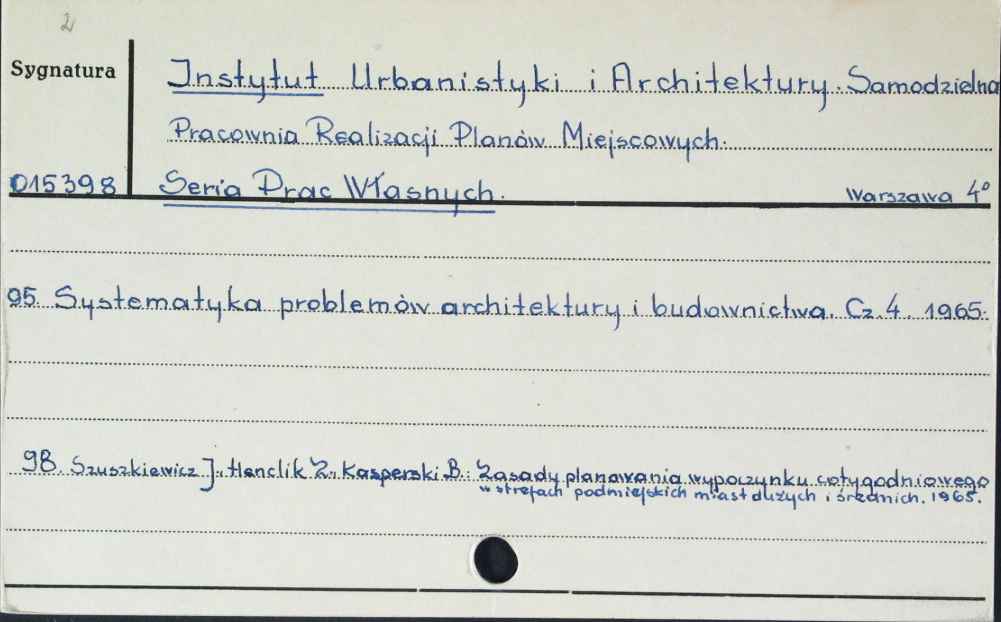 2
Sygnatura
Instytut Urbanistyki i Architektury. Samodzielna
Pracownia Realizacji Planów Miejscowych.
015398 Seria Prac Własnych. Warszawa 4°
95. Systematyka problemów architektury i budownictwa. Cz. 4. 1965.
98. Szuszkiewicz J., Henclik Z., Kasperski B.: Zasady planowania wypoczynku cotygodniowego
w strefach podmiejskich miast dużych i średnich. 1965.